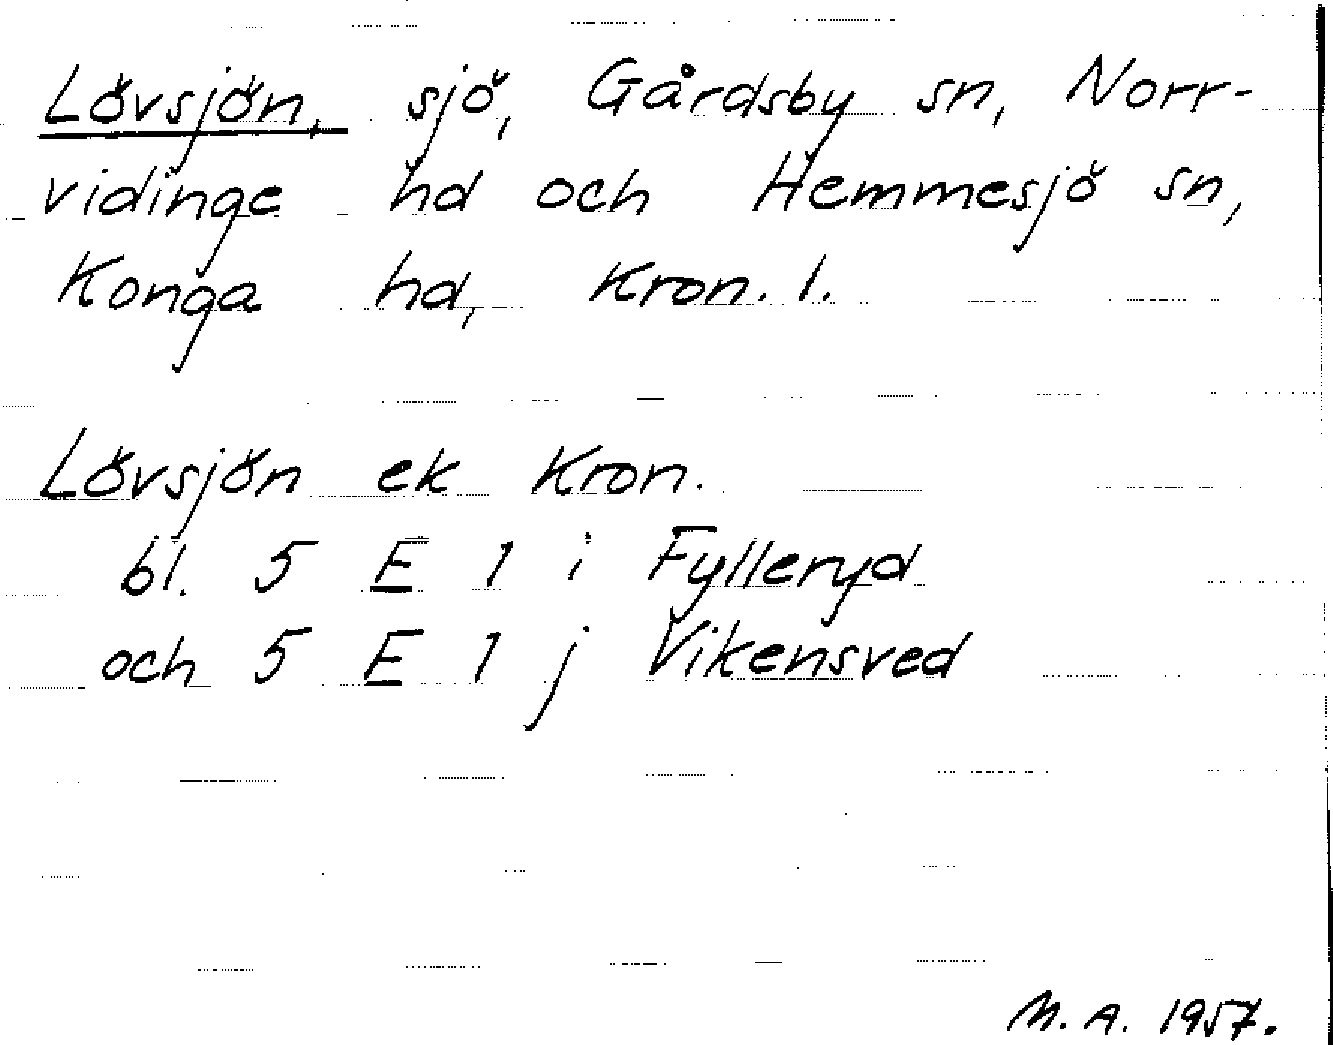 Lövsjön, sjö, Gårdsby sn, Norr-
vidinge hd och Hemmesjö sn,
Konga hd, Kron. l.
Lövsjön ek Kron.
bl. 5 E 1 i Fylleryd
och 5 E 1 j Vikensved
M. A. 1957.